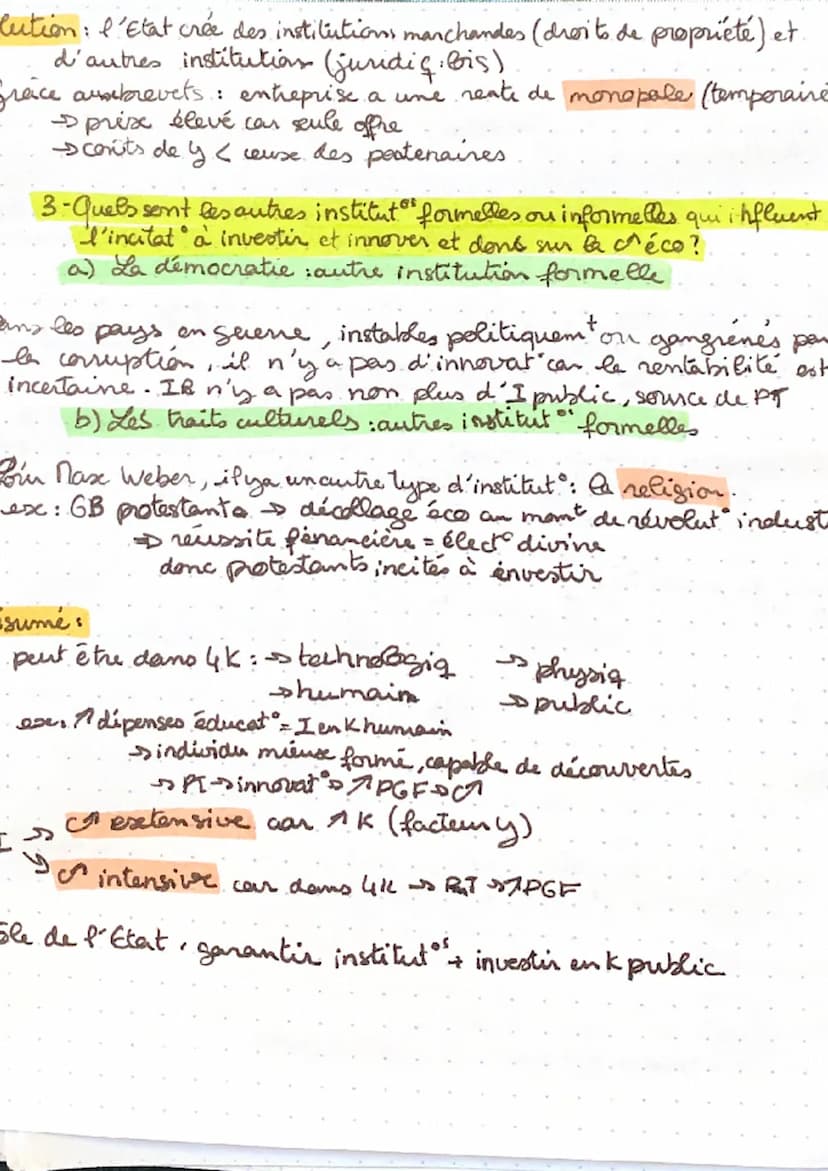 lution : l'Etat crée des institutions marchandes (droits de propriété) et
d'autres institutions (juridiq : lois)
grâce aux brevets : entreprise a une rente de monopole (temporaire
→ prix élevé car seule offre
→ coûts de y < ceux des partenaires
3 - Quels sont les autres institut°s formelles ou informelles qui influent
l'incitat° à investir et innover et donc sur la C↗ éco ?
a) La démocratie : autre institution formelle
ans les pays en guerre, instables politiquemt ou gangrénés par
la corruption, il n'y a pas d'innovat° car la rentabilité est
incertaine. Il n'y a pas non plus d'I public, source de PT
b) Les traits culturels : autres institut°s formelles
Max Weber, il y a un autre type d'institut° : la religion.
ex : GB protestante → décollage éco au momt de révolut° indust
⇒ réussite financière = élect° divine
donc protestants incités à investir
sumé :
peut être dans 4 K : → technologiq → physiq
→ humain → public
ex. ↗ dépenses éducat° = I en K humain
→ individu mieux formé, capable de découvertes
→ PT → innovat° → ↗ PGF → C↗
I → C↗ extensive car ↗ K (facteur y)
↘ C↗ intensive car dans 4K → PT → ↗ PGF
ôle de l'Etat : garantir institut°s + investir en K public